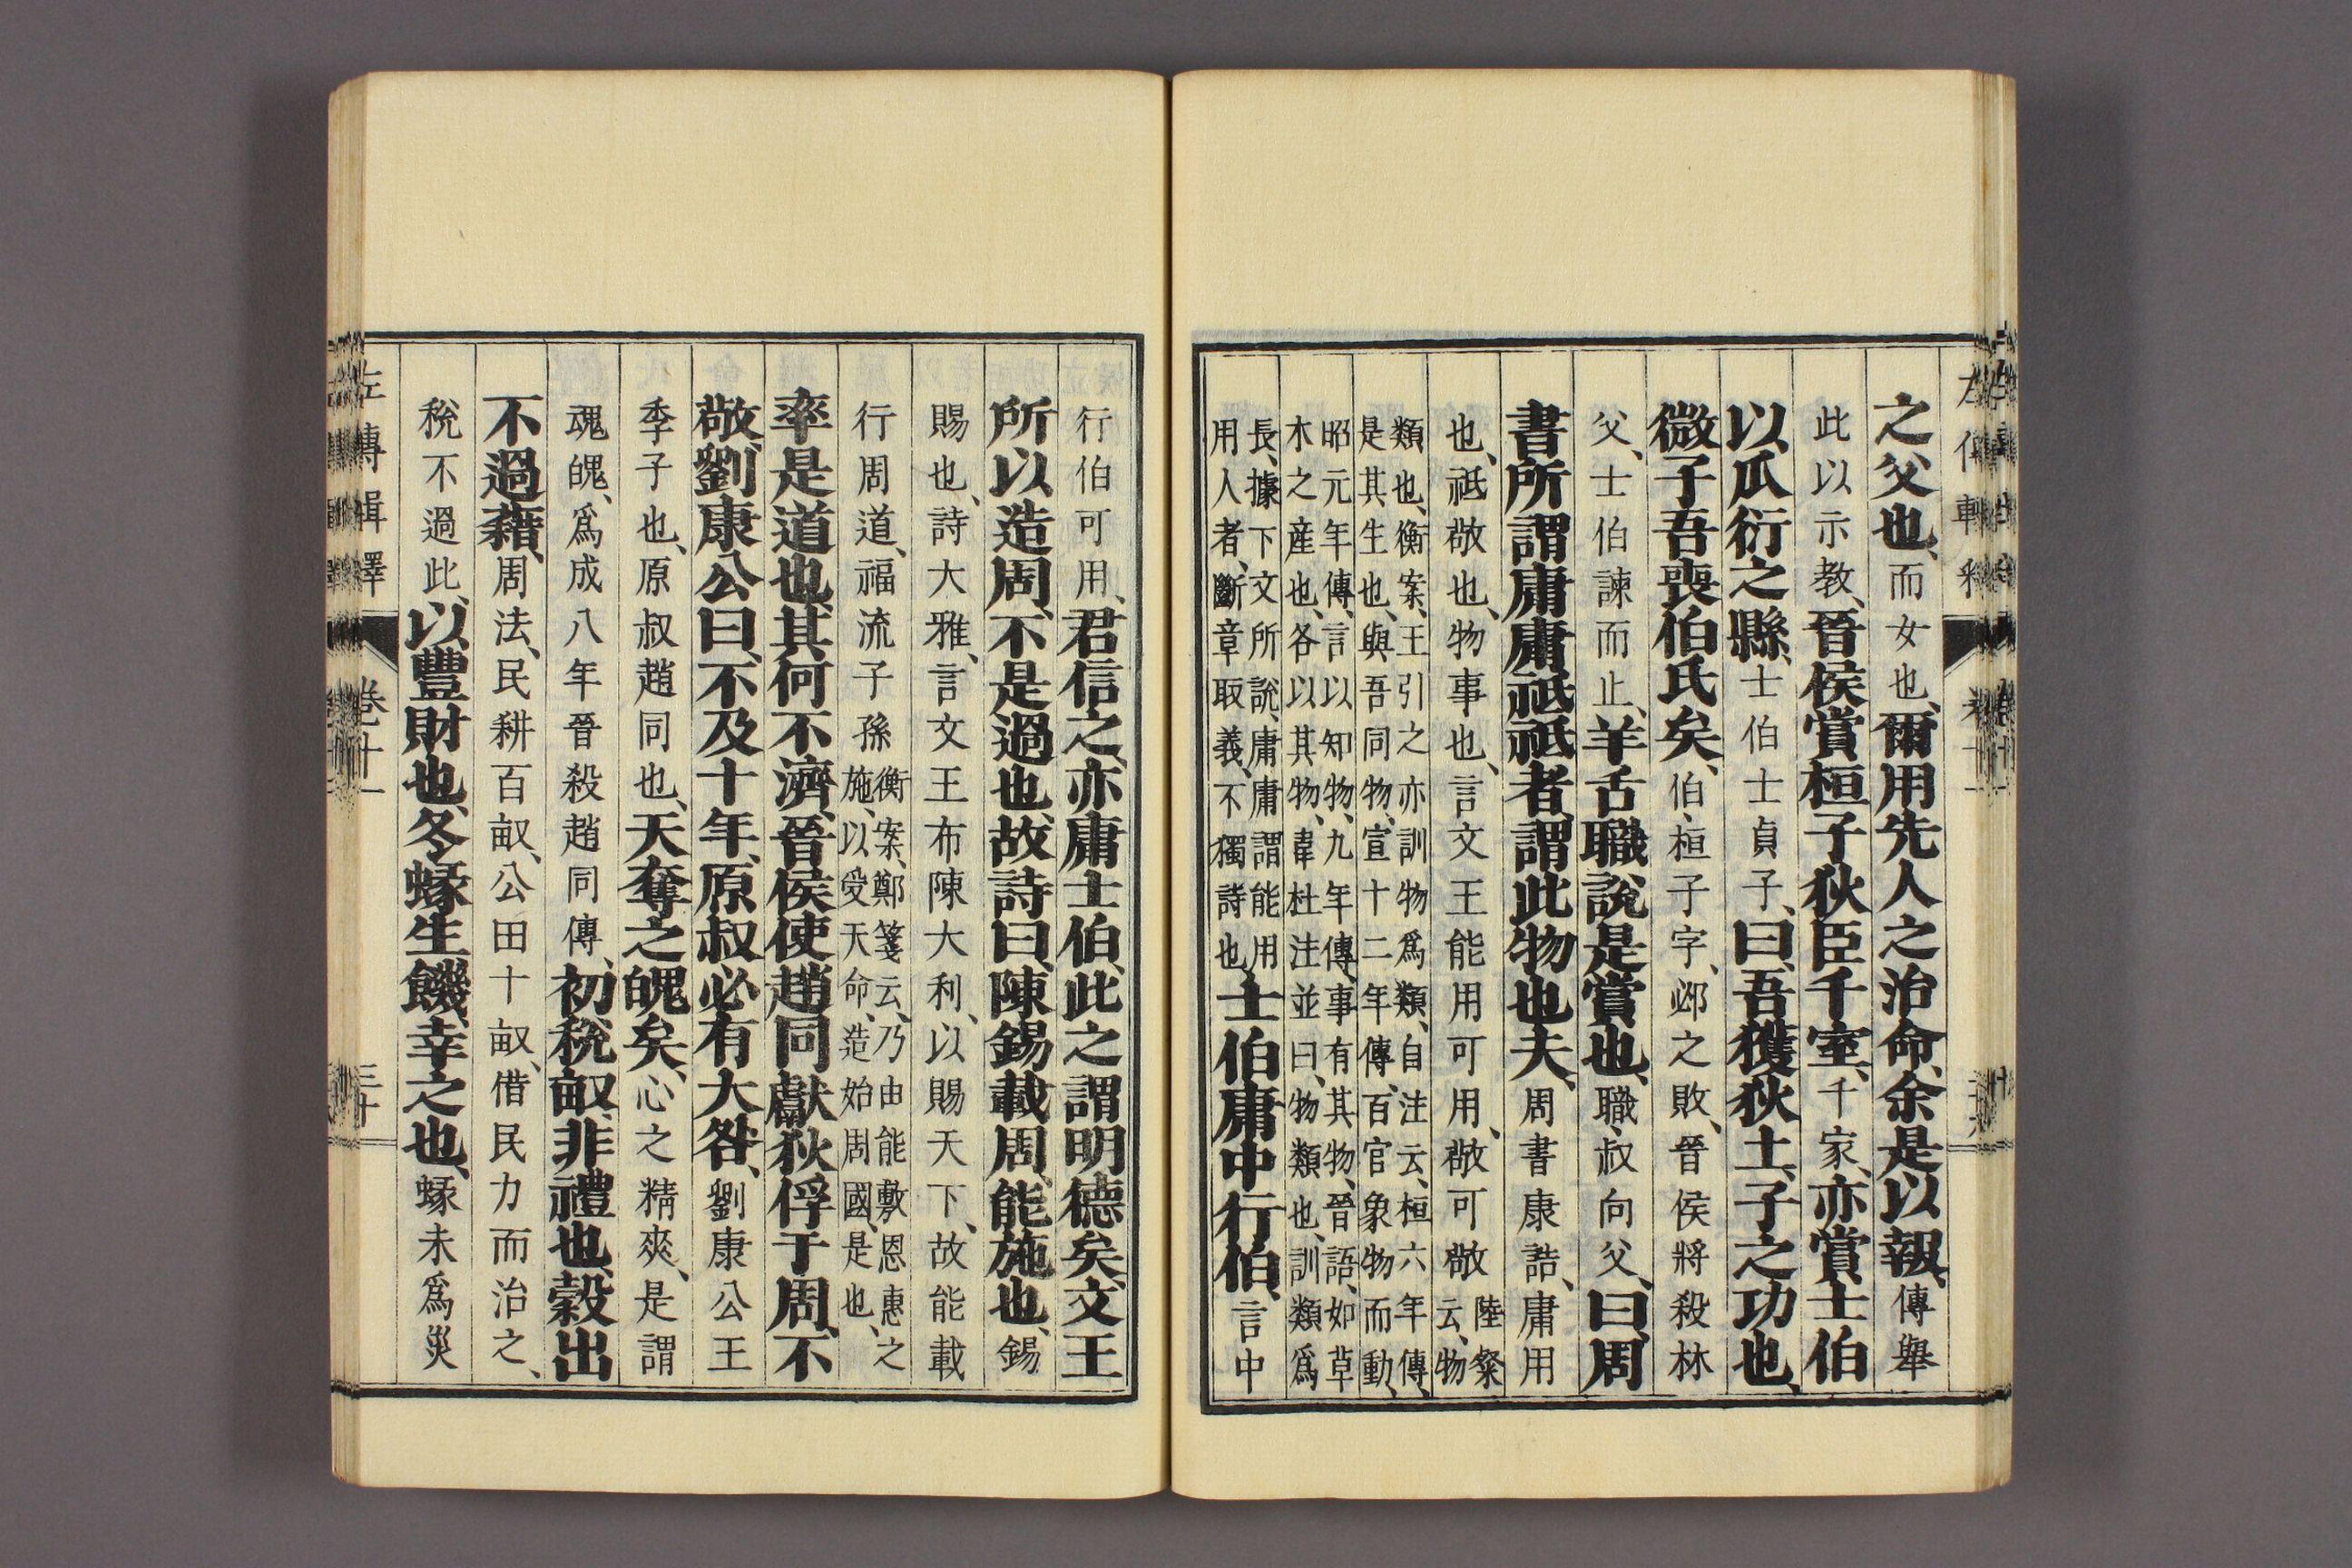 之父也、而女也、爾用先人之治命、余是以報、傳舉
此以示教、晉侯賞桓子狄臣千室、千家、亦賞士伯
以瓜衍之縣、士伯士貞子、曰、吾獲狄土、子之功也、
微子吾喪伯氏矣、伯、桓子字、邲之敗、晉侯將殺林
父、士伯諫而止、羊舌職說是賞也、職、叔向父、曰、周
書所謂庸庸祗祗者、謂此物也夫、周書康誥、庸用
也、祗敬也、物事也、言文王能用可用、敬可敬
陸粲
云、物
類也、衡案、王引之亦訓物爲類、自注云、桓六年傳、
是其生也、與吾同物、宣十二年傳、百官象物而動、
昭元年傳、言以知物、九年傳、事有其物、晉語、如草
木之産也、各以其物、韋杜注並曰、物類也、訓類爲
長、據下文所說、庸庸謂能用
用人者、斷章取義、不獨詩也
士伯庸中行伯、言中
行伯可用、君信之、亦庸士伯、此之謂明德矣、文王
所以造周、不是過也、故詩曰、陳錫載周、能施也、錫
賜也、詩大雅、言文王布陳大利、以賜天下、故能載
行周道、福流子孫
衡案、鄭箋云、乃由能敷恩惠之
施、以受天命、造始周國、是也、
率是道也、其何不濟、晉侯使趙同獻狄俘于周、不
敬、劉康公曰、不及十年、原叔必有大咎、劉康公王
季子也、原叔趙同也、天奪之魄矣、心之精爽、是謂
魂魄、爲成八年晉殺趙同傳、初稅畝、非禮也、穀出
不過藉、周法、民耕百畝、公田十畝、借民力而治之、
稅不過此、以豐財也、冬、蝝生饑、幸之也、蝝未爲災
左傳輯釋
卷十一
三十